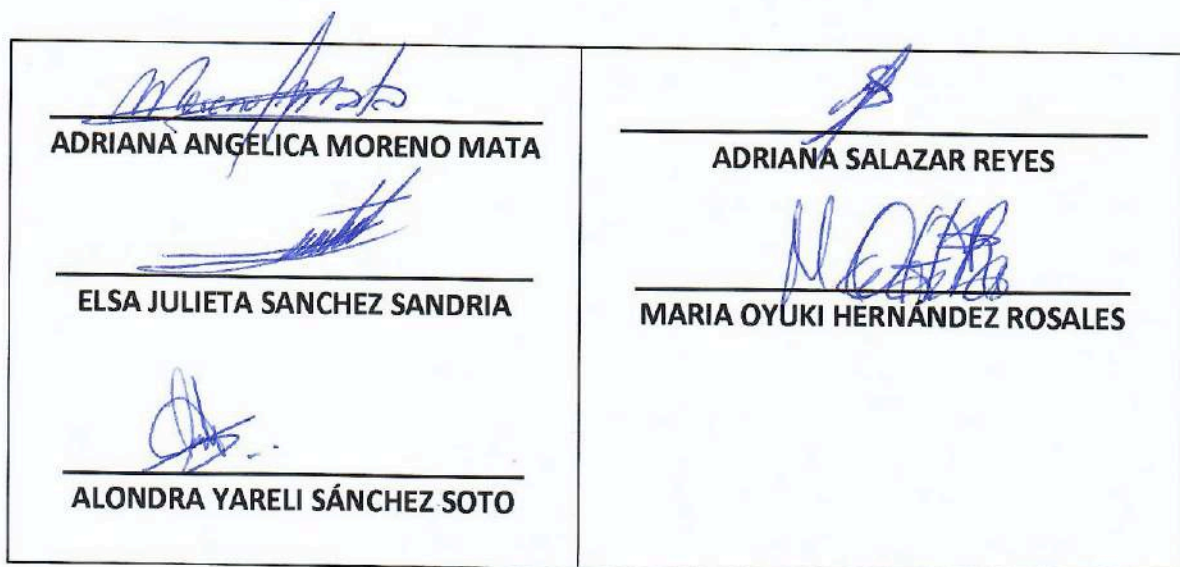 ADRIANA ANGELICA MORENO MATA
ELSA JULIETA SANCHEZ SANDRIA
ALONDRA YARELI SÁNCHEZ SOTO
ADRIANA SALAZAR REYES
MARIA OYUKI HERNÁNDEZ ROSALES